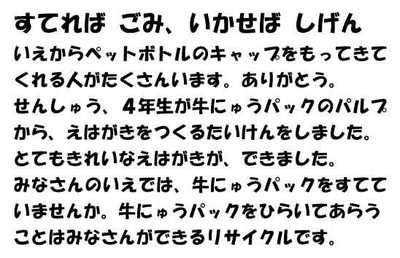 すてれば ごみ、いかせば しげん
いえからペットボトルのキャップをもってきて
くれる人がたくさんいます。ありがとう。
せんしゅう、４年生が牛にゅうパックのパルプ
から、えはがきをつくるたいけんをしました。
とてもきれいなえはがきが、できました。
みなさんのいえでは、牛にゅうパックをすてて
いませんか。牛にゅうパックをひらいてあらう
ことはみなさんができるリサイクルです。